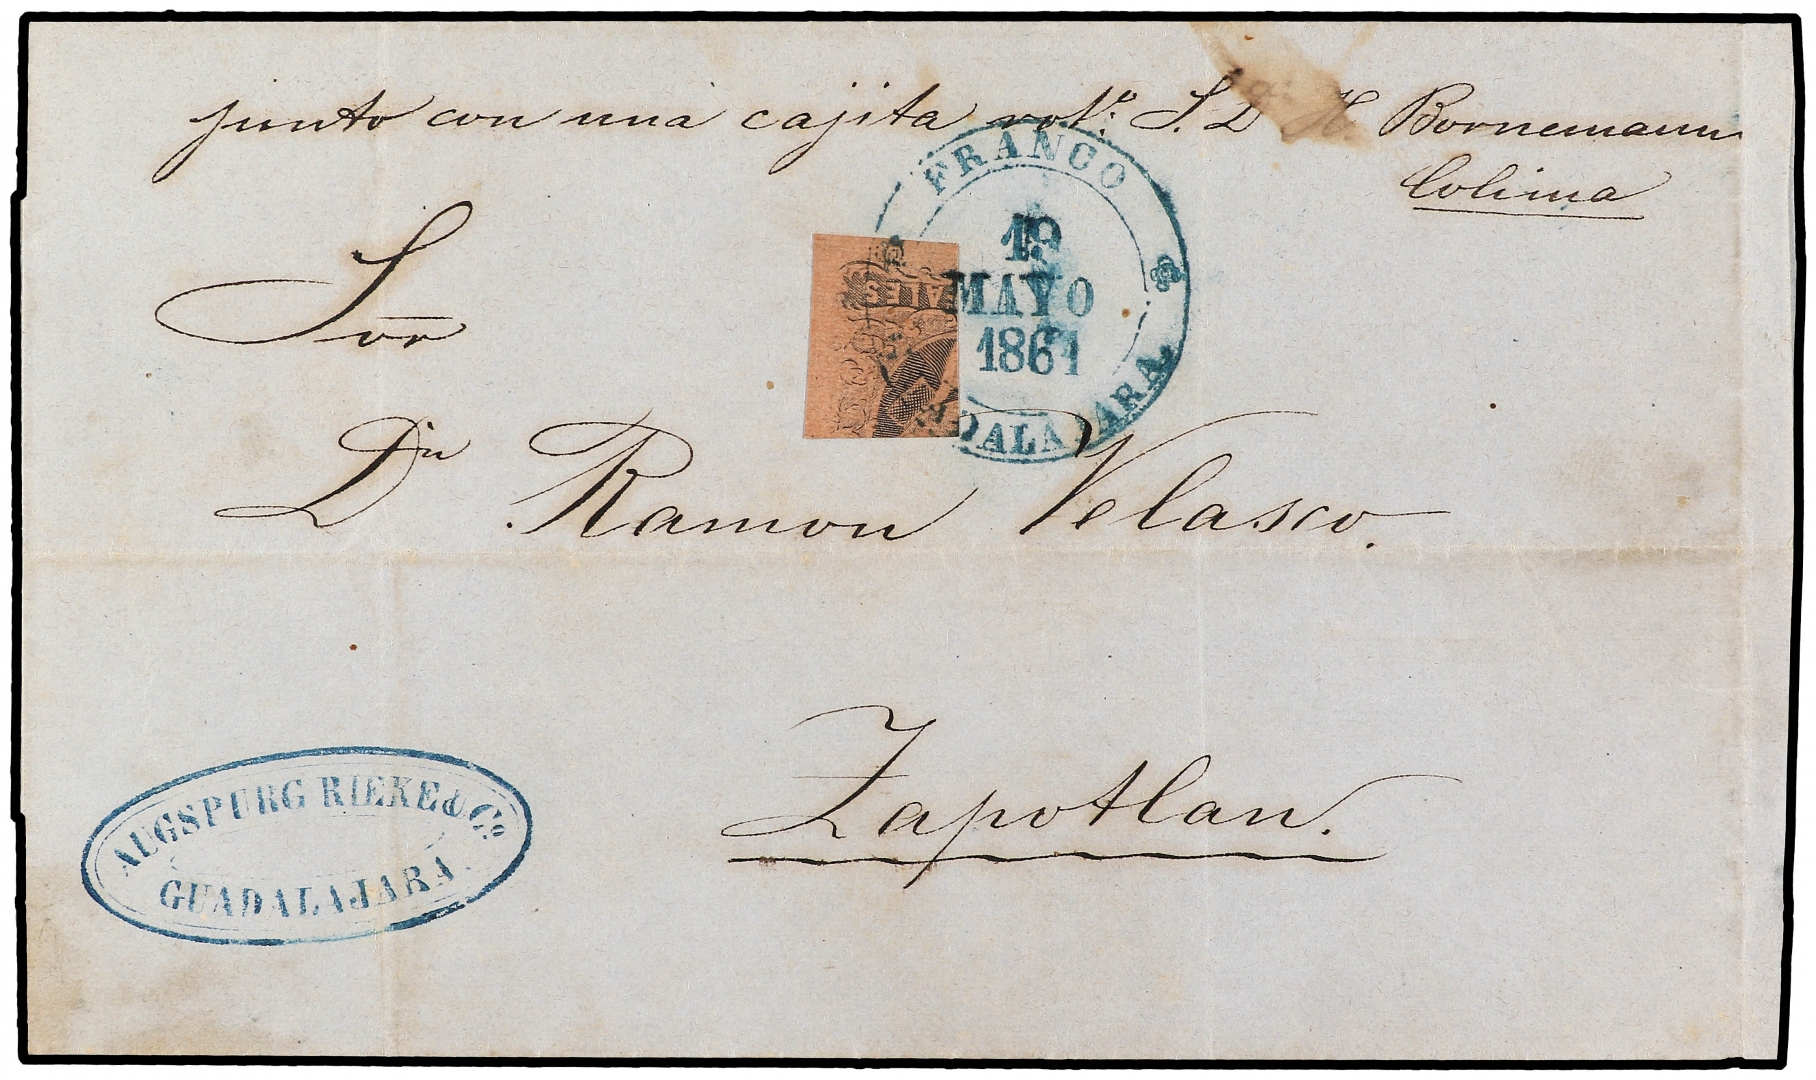 junto con una cajita rotº: S. D. H. Bornemann
Colima
FRANCO
19
MAYO
1861
GUADALAJARA.
EALES
Sor
Dn Ramon Velasco.
Zapotlan.
AUGSPURG RIEKE & Cº
GUADALAJARA.